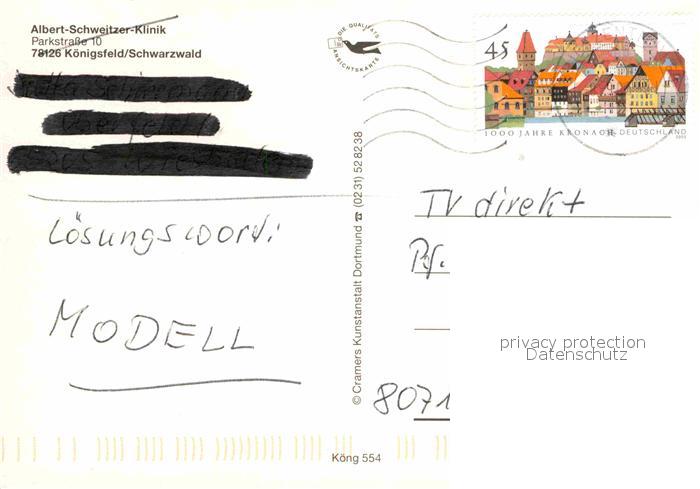 Albert-Schweitzer-Klinik
Parkstraße 10
78126 Königsfeld/Schwarzwald
DIE QUALITÄTS
ANSICHTSKARTE
45
1000 JAHRE KRONACH DEUTSCHLAND
Lösungswort:
MODELL
© Cramers Kunstanstalt Dortmund ☎ (0231) 528238
TV direkt
Pf.
8071
privacy protection
Datenschutz
Köng 554